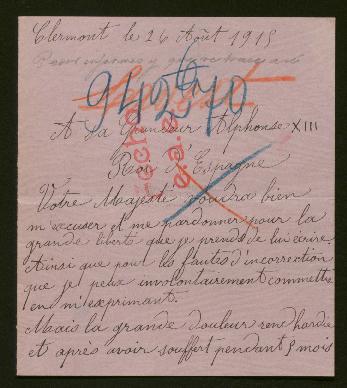 Clermont le 26 Août 1915
942570
A Sa Grandeur Alphonse XIII
Roi d'Espagne
Votre Majesté voudra bien
m'excuser et me pardonner pour la
grande liberté que je prends de lui écrire.
Ainsi que pour les fautes d'incorrection
que je peux involontairement commettre
en m'exprimant.
Mais la grande douleur rend hardie
et après avoir souffert pendant 9 mois